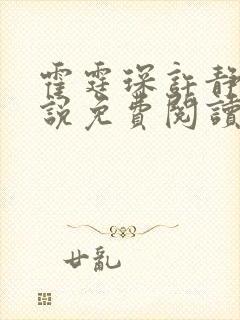 霍霆琛許靜
說免費閱讀
廿亂